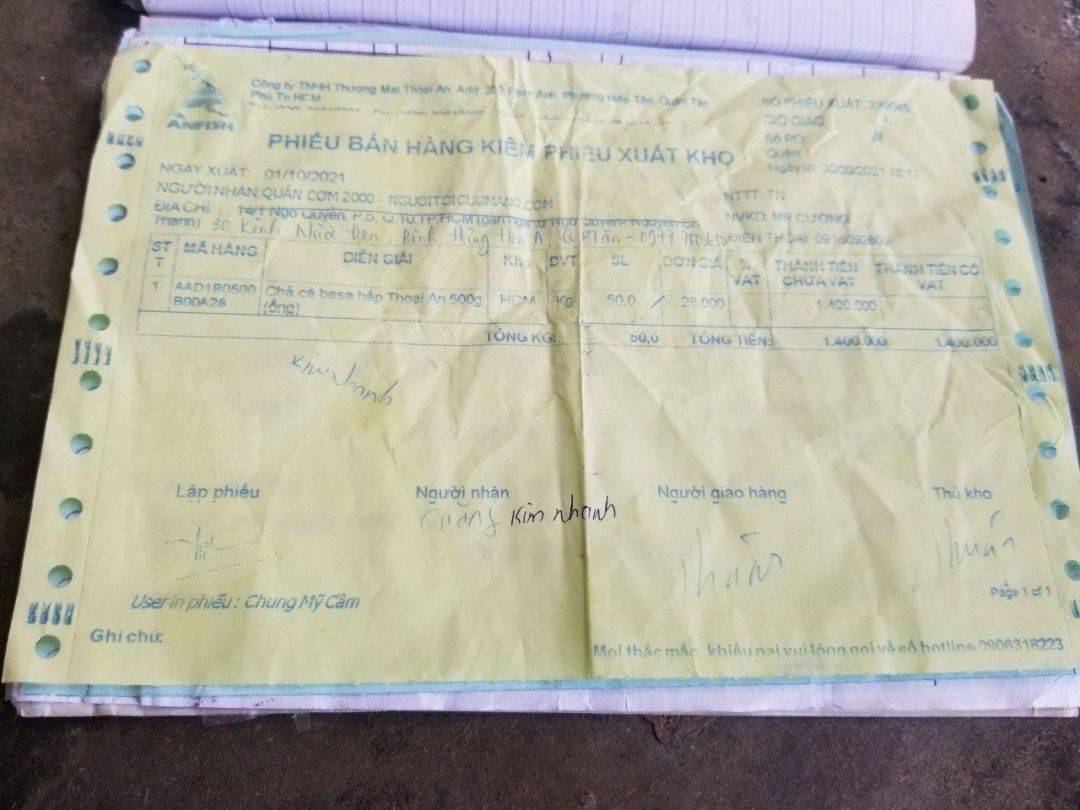 Công ty TNHH Thương Mại Thoại An. Add Phan Anh, Phường Hiệp Tân, Quận Tân
Phú, Tp.HCM
ANFISH
PHIẾU BÁN HÀNG KIÊM PHIẾU XUẤT KHO
SỐ PHIẾU XUẤT:
GIỜ GIAO
Số PO:
Quận:
Ngày in: 30/09/2021 16:17
NGÀY XUẤT: 01/10/2021
NGƯỜI NHẬN QUÁN CƠM 2000 - NGUOITOICUUMANG.COM
HTTT: TN
ĐỊA CHỈ: 14/1 Ngô Quyền, P.6, Q.10, TP.HCM (gần ngã tư Ngô Quyền- Nguyễn Chí
Thanh) 30 Kinh Nhiêu Đen, Bình Hưng Hòa A, Q Btân
NVKD: MR CƯỜNG
ĐIỆN THOẠI:
STT MÃ HÀNG DIỄN GIẢI Kho ĐVT SL ĐƠN GIÁ % VAT THÀNH TIỀN CHƯA VAT THÀNH TIỀN CÓ VAT
1 AAD1B0500B00A28 Chả cá basa hấp Thoại An 500g (ống) HCM Kg 50,0 28.000 1.400.000 -
TỔNG KG: 50,0 TỔNG TIỀN: 1.400.000 1.400.000
Kim nhanh
Lập phiếu Người nhận Người giao hàng Thủ kho
Quang Kim nhanh
Page 1 of 1
User in phiếu : Chung Mỹ Cầm
Ghi chú:
Mọi thắc mắc, khiếu nại vui lòng gọi về số hotline 0908316223